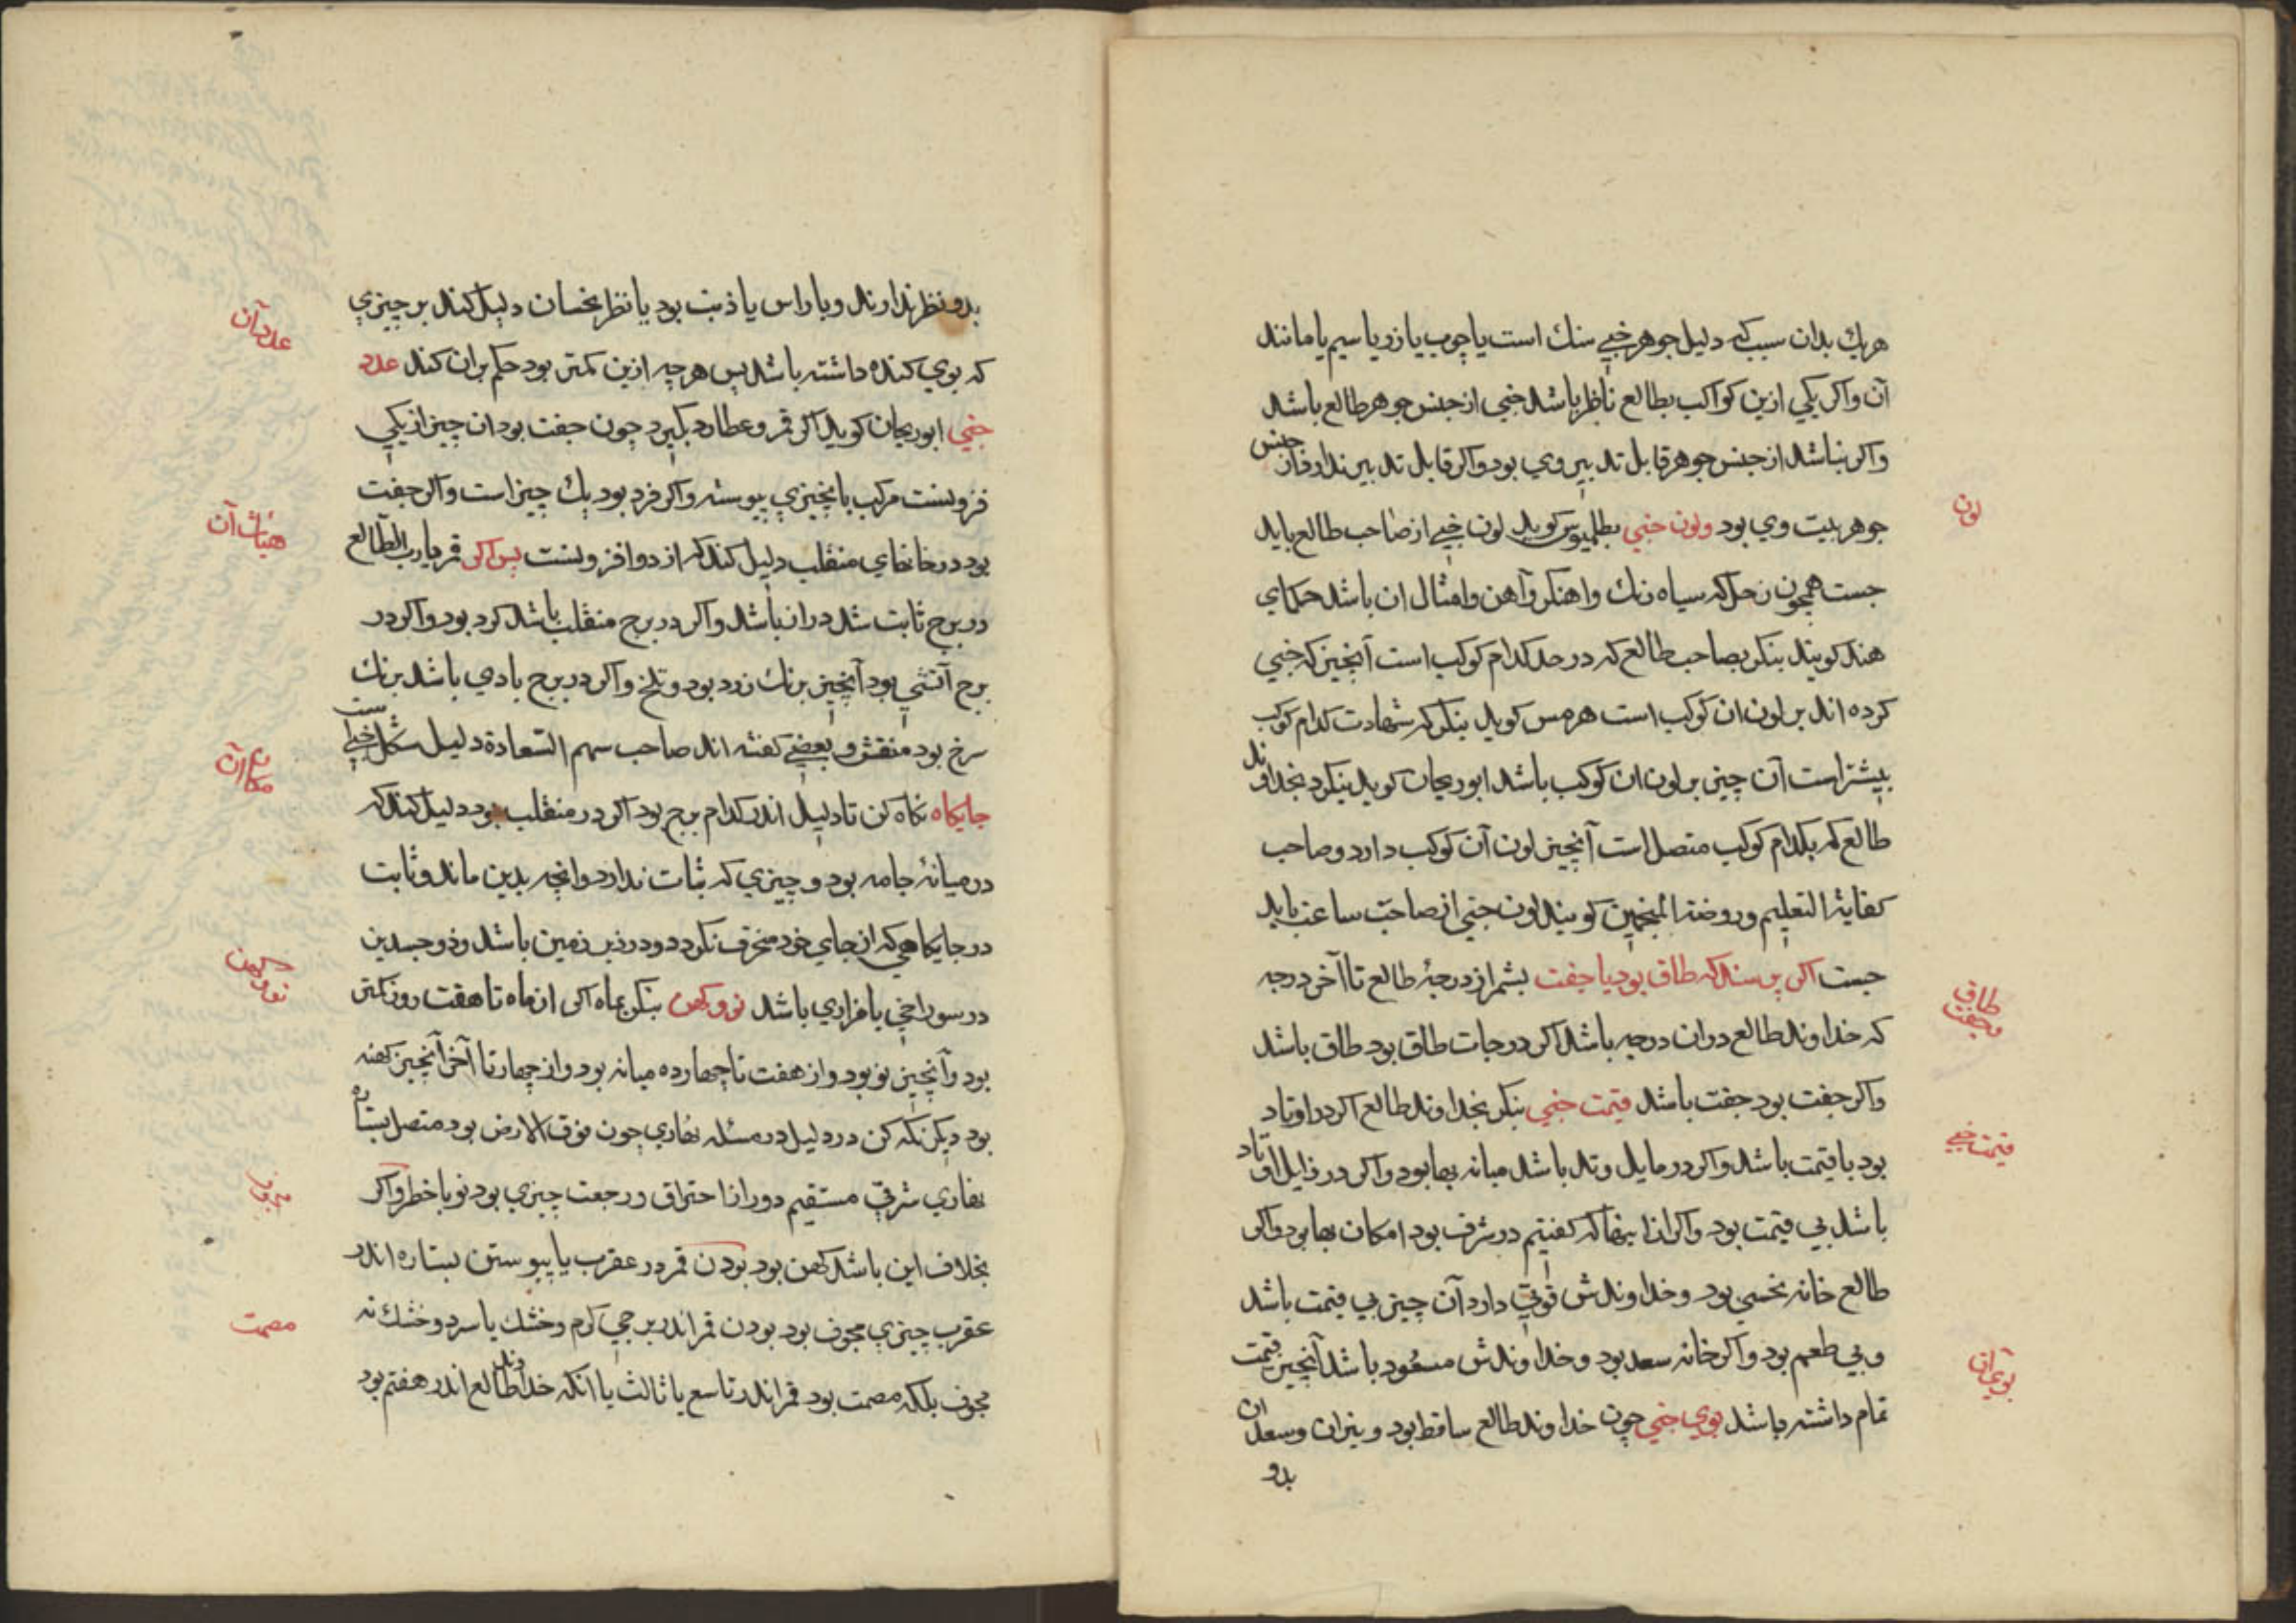 هریك بدان سبب که دلیل جوهر خبی سنك است یا چوب یا زر یا سیم یا مانند
آن واکر یکی ازین کواکب بطالع ناظر باشد خبی از جنس جوهر طالع باشد
واکر نباشد از جنس جوهر قابل تدبیر وی بود واکر قابل تدبیر ندارد از جنس
جوهر بیت وی بود ولون خبی بطلمیوس کوید لون خبی از صاحب طالع باید
لون
جست همچون زحل که سیاه رنك واهنکر وآهن وامثال ان باشد حکمای
هند کویند بنکر بصاحب طالع که در حد کدام کوکب است آنچیز که خبی
کرده اند بر لون ان کوکب است هرمس کوید بنکر که شهادت کدام کوکب
بیشتر است آن چیز بر لون ان کوکب باشد ابوریحان کوید بنکرد بخداوند
طالع که بکدام کوکب متصل است آنچیز لون آن کوکب دارد وصاحب
کفایة التعلیم وروضة المنجمین کویند لون خبی از صاحب ساعت باید
جست اکر پرسند که طاق بود یا جفت بشمر از درجۀ طالع تا آخر درجه
طاق وجفت
که خداوند طالع دران درجه باشد اکر درجات طاق بود طاق باشد
واکر جفت بود جفت باشد قیمت خبی بنکر بخداوند طالع اکر در اوتاد
قیمت خبی
بود با قیمت باشد واکر در مایل وتد باشد میانه بها بود واکر در زایل اوتاد
باشد بی قیمت بود واکر ازینها که کفتیم در شرف بود امکان بها بود واکر
طالع خانه نحسی بود وخداوندش قوتی دارد آن چیز بی قیمت باشد
وبی طعم بود واکر خانه سعد بود وخداوندش مسعود باشد آنچیز قیمت
بوی آن
تمام داشته باشد بوی خبی چون خداوند طالع ساقط بود ونیران وسعدان
بدو
بدو نظر ندارند ویا راس یا ذنب بود یا نظر نحسان دلیل کند بر چیزی
عدد آن
که بوی کنده داشته باشد پس هرچه ازین کمتر بود حکم بران کند عدد
خبی ابوریحان کوید اکر قمر وعطارد بکیرد چون جفت بود ان چیز از یکی
فزونست مرکب یا بچیزی پیوسته واکر فرد بود یك چیز است واکر جفت
هیئات آن
بود در خانهای منقلب دلیل کند که از دو افزونست پس اکر قمر یا رب الطالع
در برج ثابت شد دران باشد واکر در برج منقلب باشد کرد بود واکر در
برج آتشی بود آنچیز برنك زرد بود وتلخ واکر در برج بادی باشد برنك
سرخ بود منقش وبعضی کفته اند صاحب سهم السعادة دلیل شکل خبی ست
مکان آن
جایکاه نکاه کن تا دلیل اندر کدام برج بود اکر در منقلب بود دلیل کند که
در میانۀ جامه بود وچیزی که ثبات ندارد وانچه بدین ماند وثابت
در جایکاهی که از جای خود منحرف نکردد ودر زیر زمین باشد وذوجسدین
نو وکهن
در سوراخی یا فرازی باشد نو وکهن بنکر بماه اکر از ماه تا هفت روز کمتر
بود وآنچیز نو بود واز هفت تا چهارده میانه بود واز چهارتا آخر آنچیز کهنه
بود دیکر نکه کن در دلیل در مسئله نهاری چون فوق الارض بود متصل بستاره
نهاری شرقی مستقیم دور از احتراق ورجعت چیزی بود نو با خطر واکر
مجوف
بخلاف این باشد کهن بود بودن قمر در عقرب یا پیوستن بستاره اندر
عقرب چیزی مجوف بود بودن قمر اندر برجی کرم وخشك یا سرد وخشك نه
مصمت
مجوف بلکه مصمت بود قمر اندر تاسع یا ثالث یا انکه خداوند طالع اندر هفتم بود